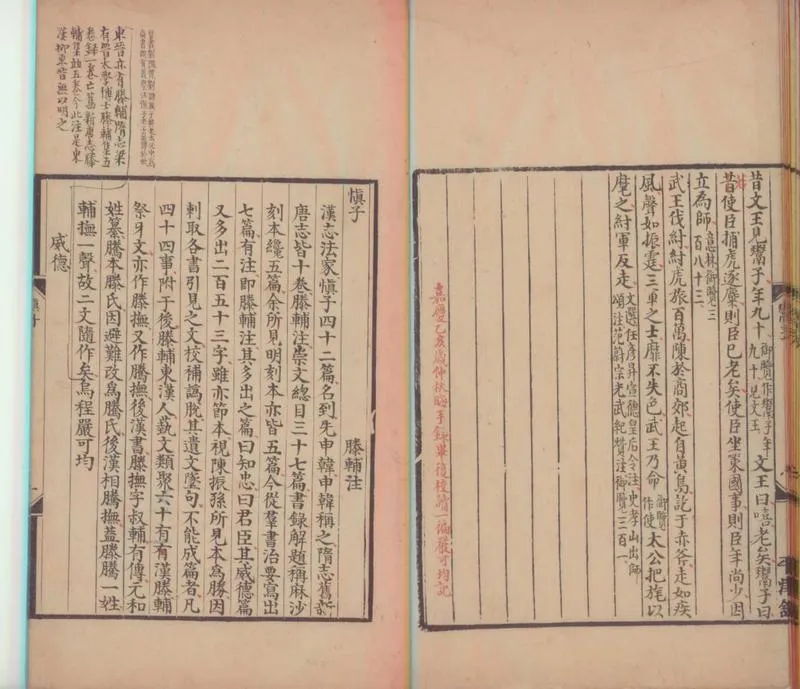 昔文王見鬻子年九十御覽作鬻子年九十見文王文王曰嘻老矣鬻子曰
昔使臣捕虎逐麋則臣已老矣使臣坐䇿國事則臣年尚少因
立為師意林御覽三百八十三
武王伐紂紂虎旅百萬陳於商郊起自黃鳥訖于赤斧走如疾
風聲如振霆三軍之士靡不失色武王乃命御覽作使太公把旄以
麾之紂軍反走文選任彦昇宣德皇后令注史孝山出師頌注范蔚宗光武紀贊注御覽三百一
嘉慶乙亥歲仲秋晦手錄畢復校讀一徧嚴可均記
東晉亦有滕輔隋志梁
有晉太學博士滕輔集五
卷錄一卷亡舊新唐志滕
輔集並五卷今此注是東
漢抑東晉無以明之
慎子
滕輔注
漢志法家慎子四十二篇名到先申韓申韓稱之隋志舊新
唐志皆十卷滕輔注崇文總目三十七篇書錄解題稱麻沙
刻本纔五篇余所見明刻本亦皆五篇今從羣書治要寫出
七篇有注即滕輔注其多出之篇曰知忠曰君臣其威德篇
又多出二百五十三字雖亦節本視陳振孫所見本為勝因
刺取各書引見之文校補譌脫其遺文墜句不能成篇者凡
四十四事附于後滕輔東漢人藝文類聚六十有有漢滕輔
祭牙文亦作滕撫又作騰撫後漢書滕撫字叔輔有傳元和
姓纂騰本滕氏因避難改為騰氏後漢相騰撫蓋滕騰一姓
輔撫一聲故二文隨作矣烏程嚴可均
威德